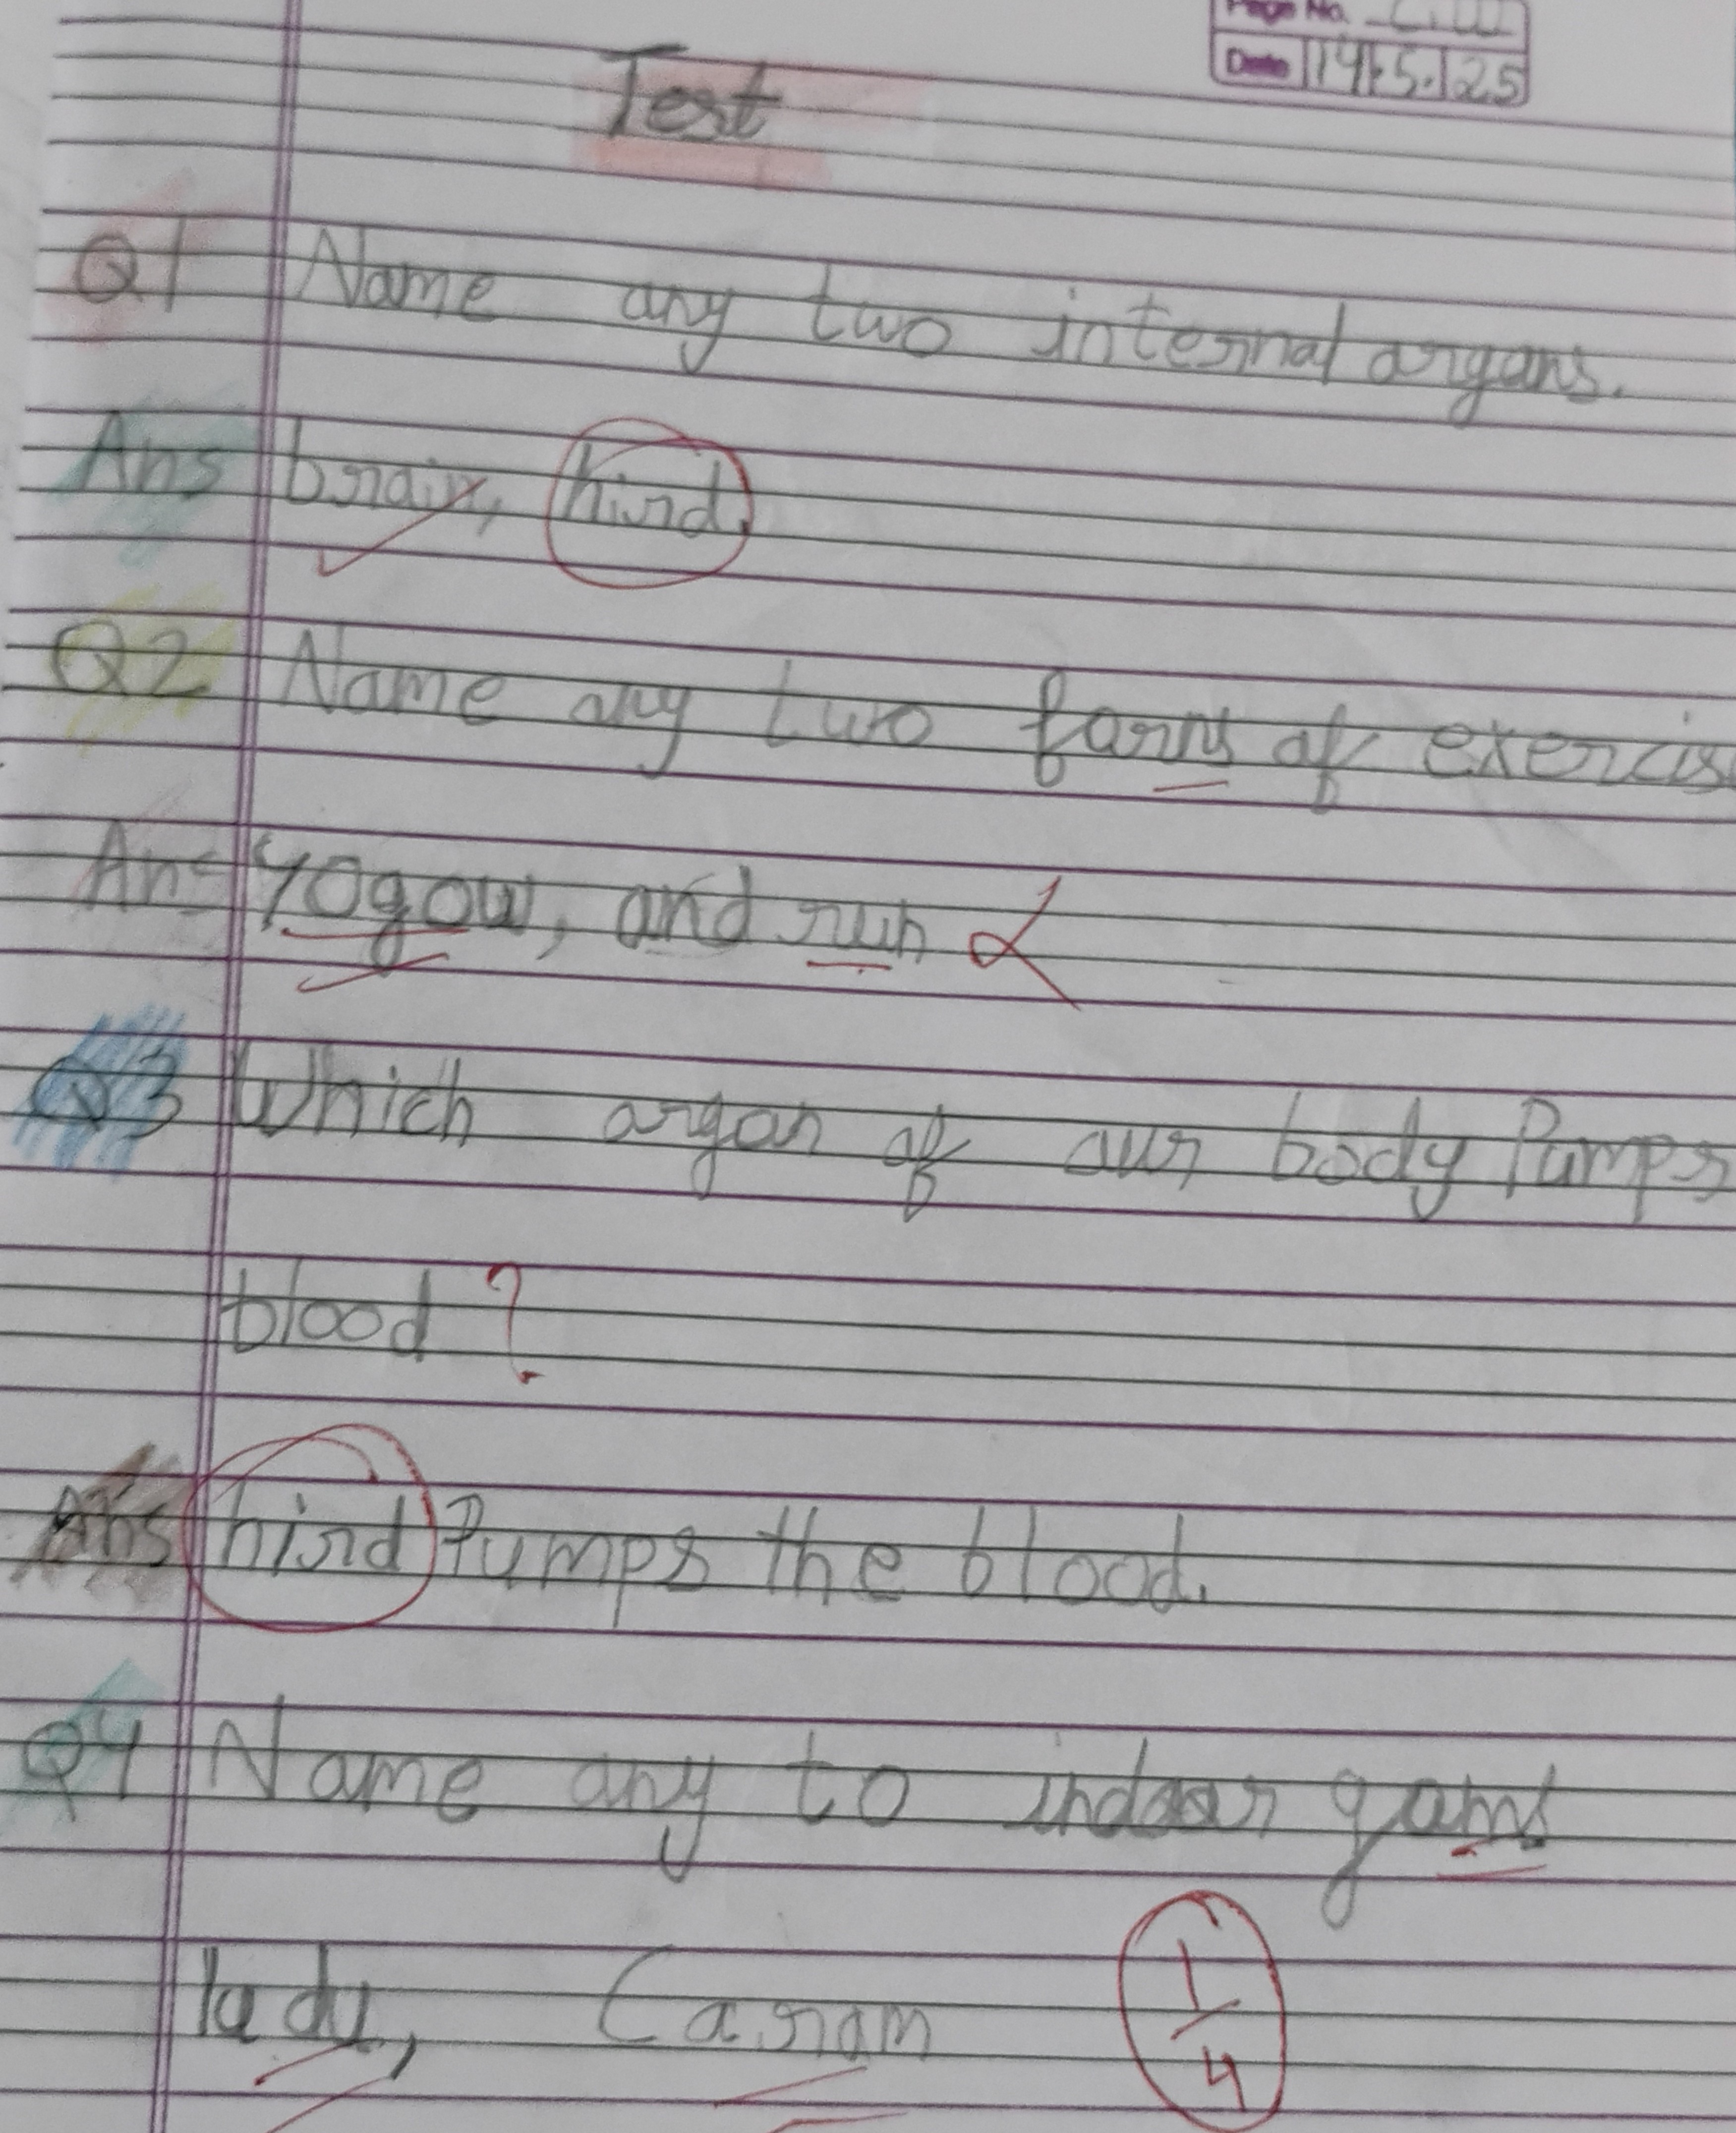 Page No.
Date 14.5.25
Test
Q1 Name any two internal organs.
Ans brain, hird.
Q2 Name any two forns of exercis
Ans yogow, and run
Q3 Which organ of our body Pumps
blood ?
Ans hird Pumps the blood.
Q4 Name any to indoor gams
ludu, Caram
1/4